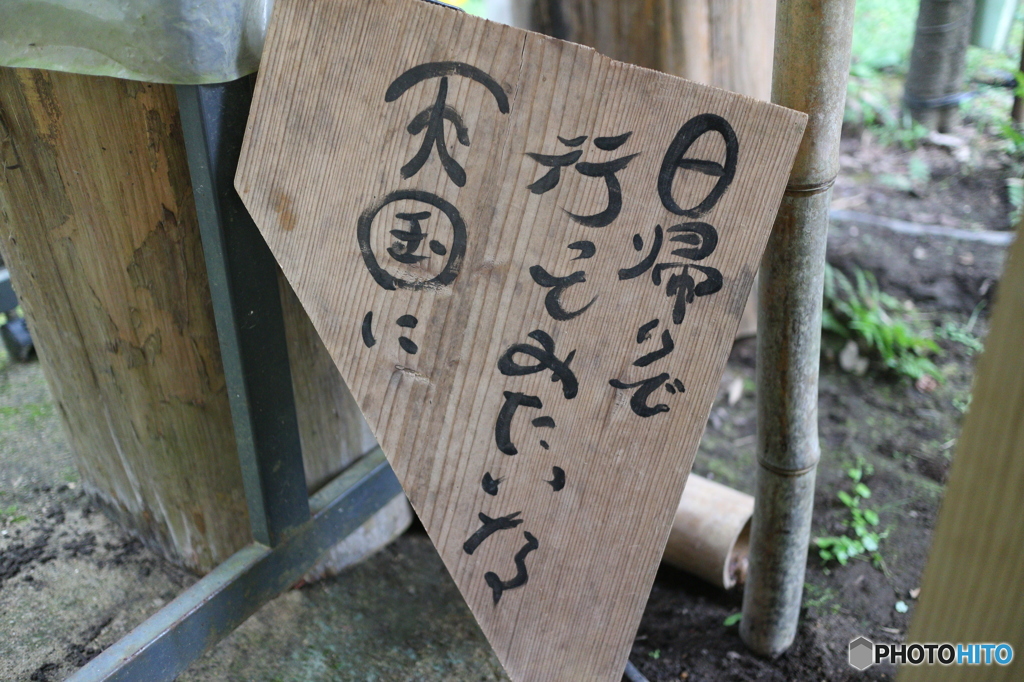 日帰りで
行ってみたいな
天国に
PHOTOHITO